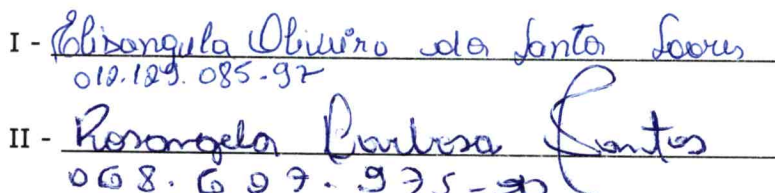 I - Elisangula Oliveira da Santos Soares
012.129.085-97
II - Rosangela Barbosa Santos
068.697.975-